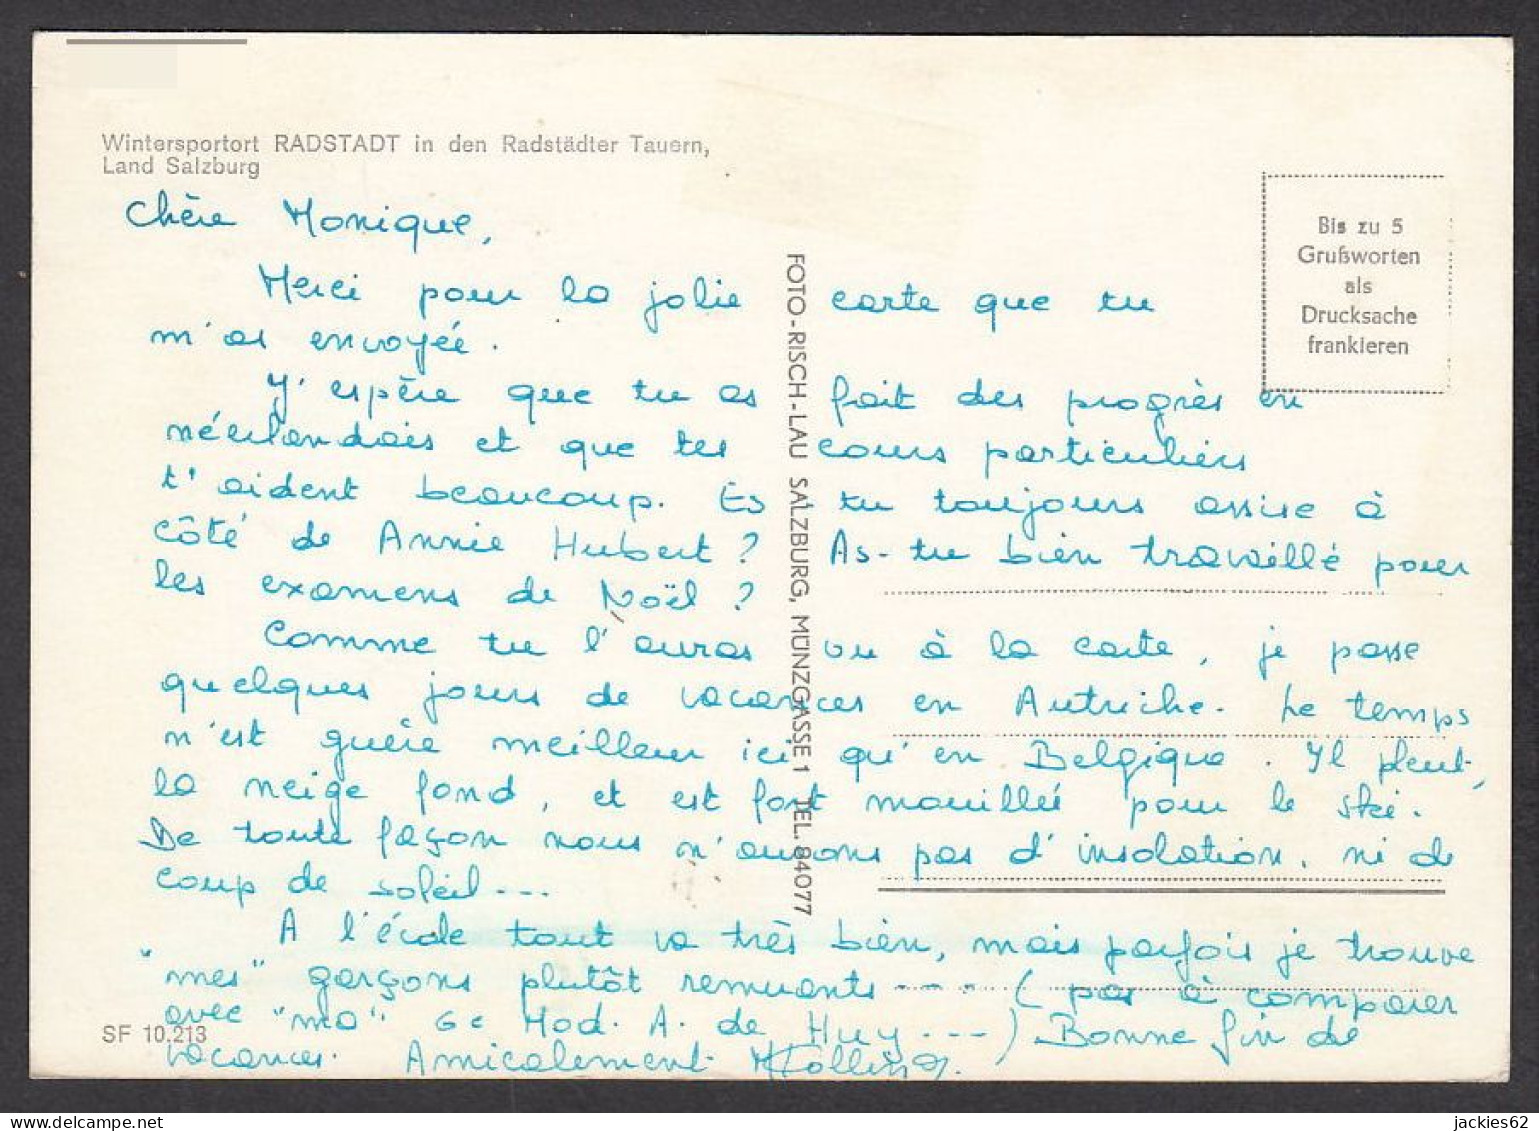 Wintersportort RADSTADT in den Radstädter Tauern,
Land Salzburg
Bis zu 5
Grußworten
als
Drucksache
frankieren
FOTO-RISCH-LAU SALZBURG, MÜNZGASSE 1 TEL. 84077
Chère Monique,
Merci pour la jolie carte que tu
m'as envoyée.
J'espère que tu as fait des progrès en
néerlandais et que tes cours particuliers
t'aident beaucoup. Es tu toujours assise à
côté de Annie Hubert ? As-tu bien travaillé pour
les examens de Noël ?
Comme tu l'auras vu à la carte, je passe
quelques jours de vacances en Autriche. Le temps
n'est guère meilleur ici qu'en Belgique. Il pleut,
la neige fond, et est fort mouillée pour le ski.
De toute façon nous n'aurons pas d'insolation, ni de
coup de soleil ---
A l'école tout va très bien, mais parfois je trouve
"mes" garçons plutôt remuants - - - (pas à comparer
avec "ma" 6e Mod. A. de Huy ---) Bonne fin de
vacances. Amicalement
SF 10.213
delcampe.net
jackies62